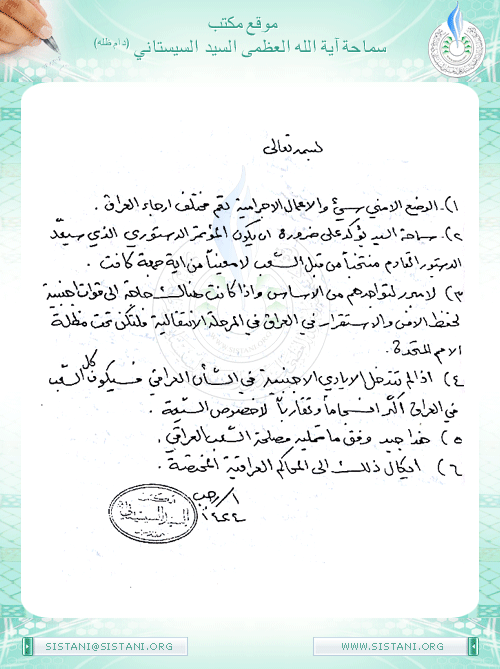 موقع مكتب
سماحة آية الله العظمى السيد السيستاني (دام ظله)
بسمه تعالى
١)ـ الوضع الامني سيئ والاعمال الاجرامية تعم مختلف ارجاء العراق.
٢)ـ سماحة السيد يؤكد على ضرورة ان يكون المؤتمر الدستوري الذي سيعدّ
الدستور القادم منتخباً من قبل الشعب لا معيناً من اية جهة كانت.
٣) لا مبرر لتواجدهم من الاساس واذا كانت هنالك حاجة الى قوات اجنبية
لحفظ الامن والاستقرار في العراق في المرحلة الانتقالية فلتكن تحت مظلة
الامم المتحدة.
٤) اذا لم تتدخل الايادي الاجنبية في الشأن العراقي فسيكون كل الشعب
في العراق أكثر انسجاماً وتقارباً لا خصوص الشيعة.
٥) هذا جيد وفق ما تمليه مصلحة الشعب العراقي.
٦) ايكال ذلك الى المحاكم العراقية المختصة.
١/رجب
١٤٢٤
مكتب
السيد السيستاني
SISTANI@SISTANI.ORG
WWW.SISTANI.ORG